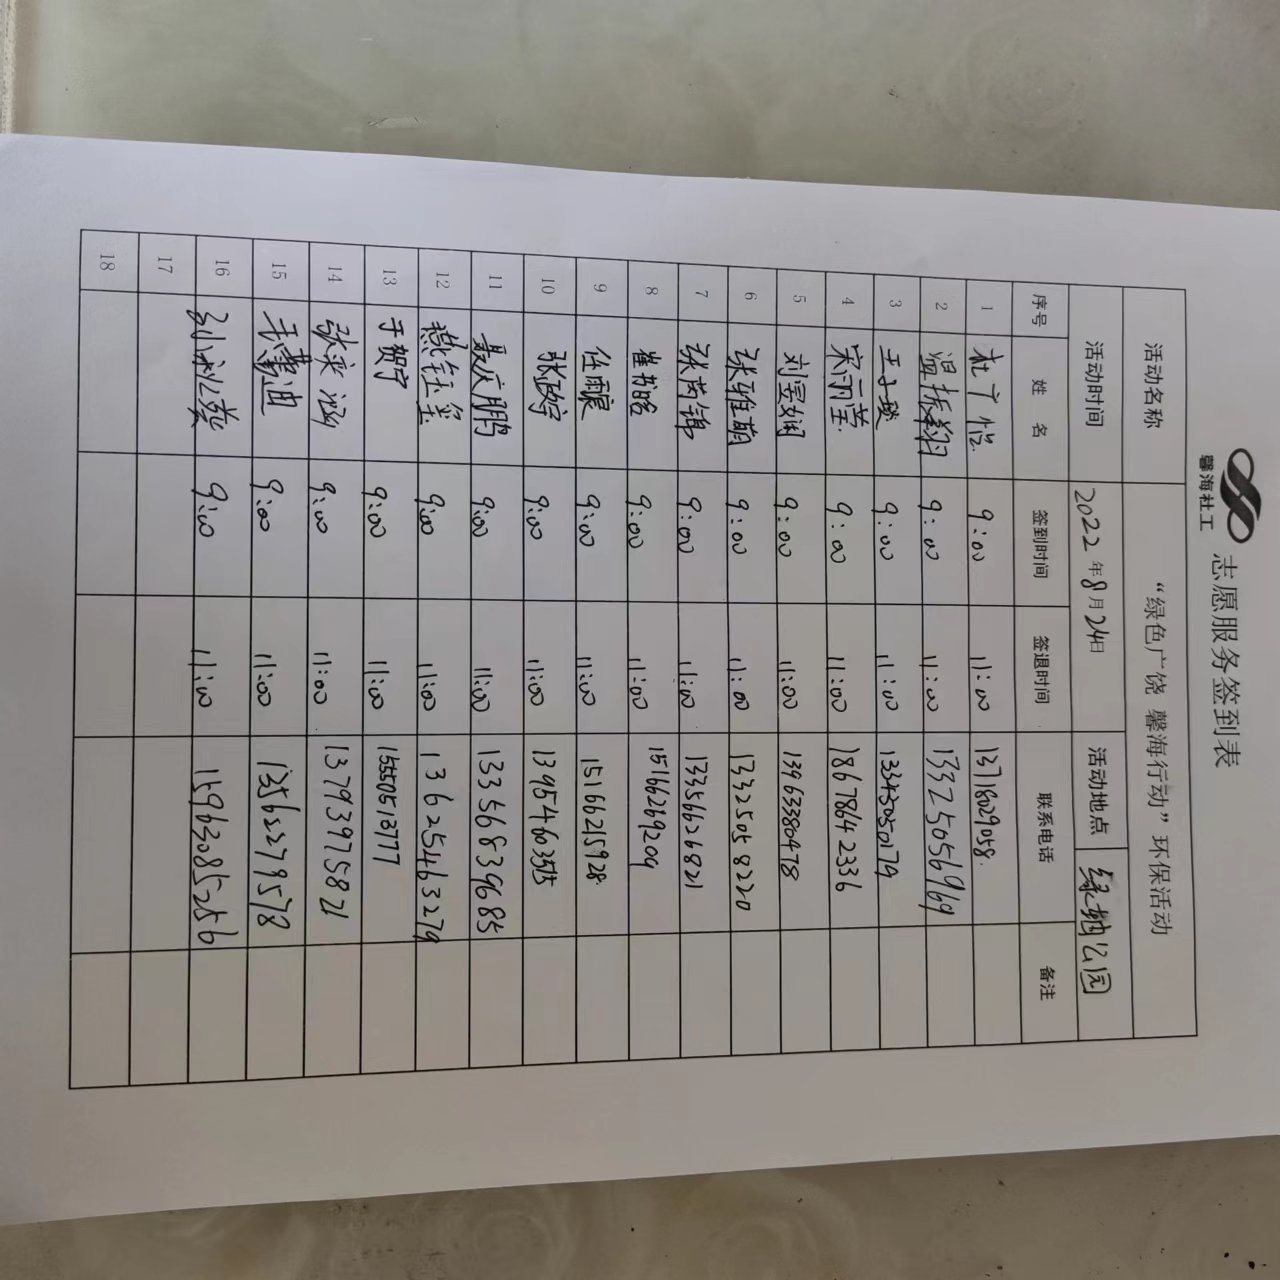 馨海社工
志愿服务签到表
活动名称 “绿色广饶 馨海行动”环保活动
活动时间 2022年8月24日 活动地点 绿地公园
序号 姓名 签到时间 签退时间 联系电话 备注
1 杜广恺 9:00 11:00 13718029058
2 温振翔 9:00 11:00 13325056969
3 王子瑛 9:00 11:00 13343050179
4 宋雨莹 9:00 11:00 18678642336
5 刘昱娴 9:00 11:00 13963380478
6 张雅萌 9:00 11:00 13325058220
7 张芮锦 9:00 11:00 13356626821
8 崔书晗 9:00 11:00 15166269209
9 任雨晨 9:00 11:00 15166215928
10 张政宇 9:00 11:00 13954603515
11 聂庆鹏 9:00 11:00 13356839685
12 燕钰玺 9:00 11:00 13625463279
13 于贺宁 9:00 11:00 15550513777
14 张家涵 9:00 11:00 13793975821
15 王蕙迪 9:00 11:00 13562279578
16 9:00 11:00 15963085256
17
18